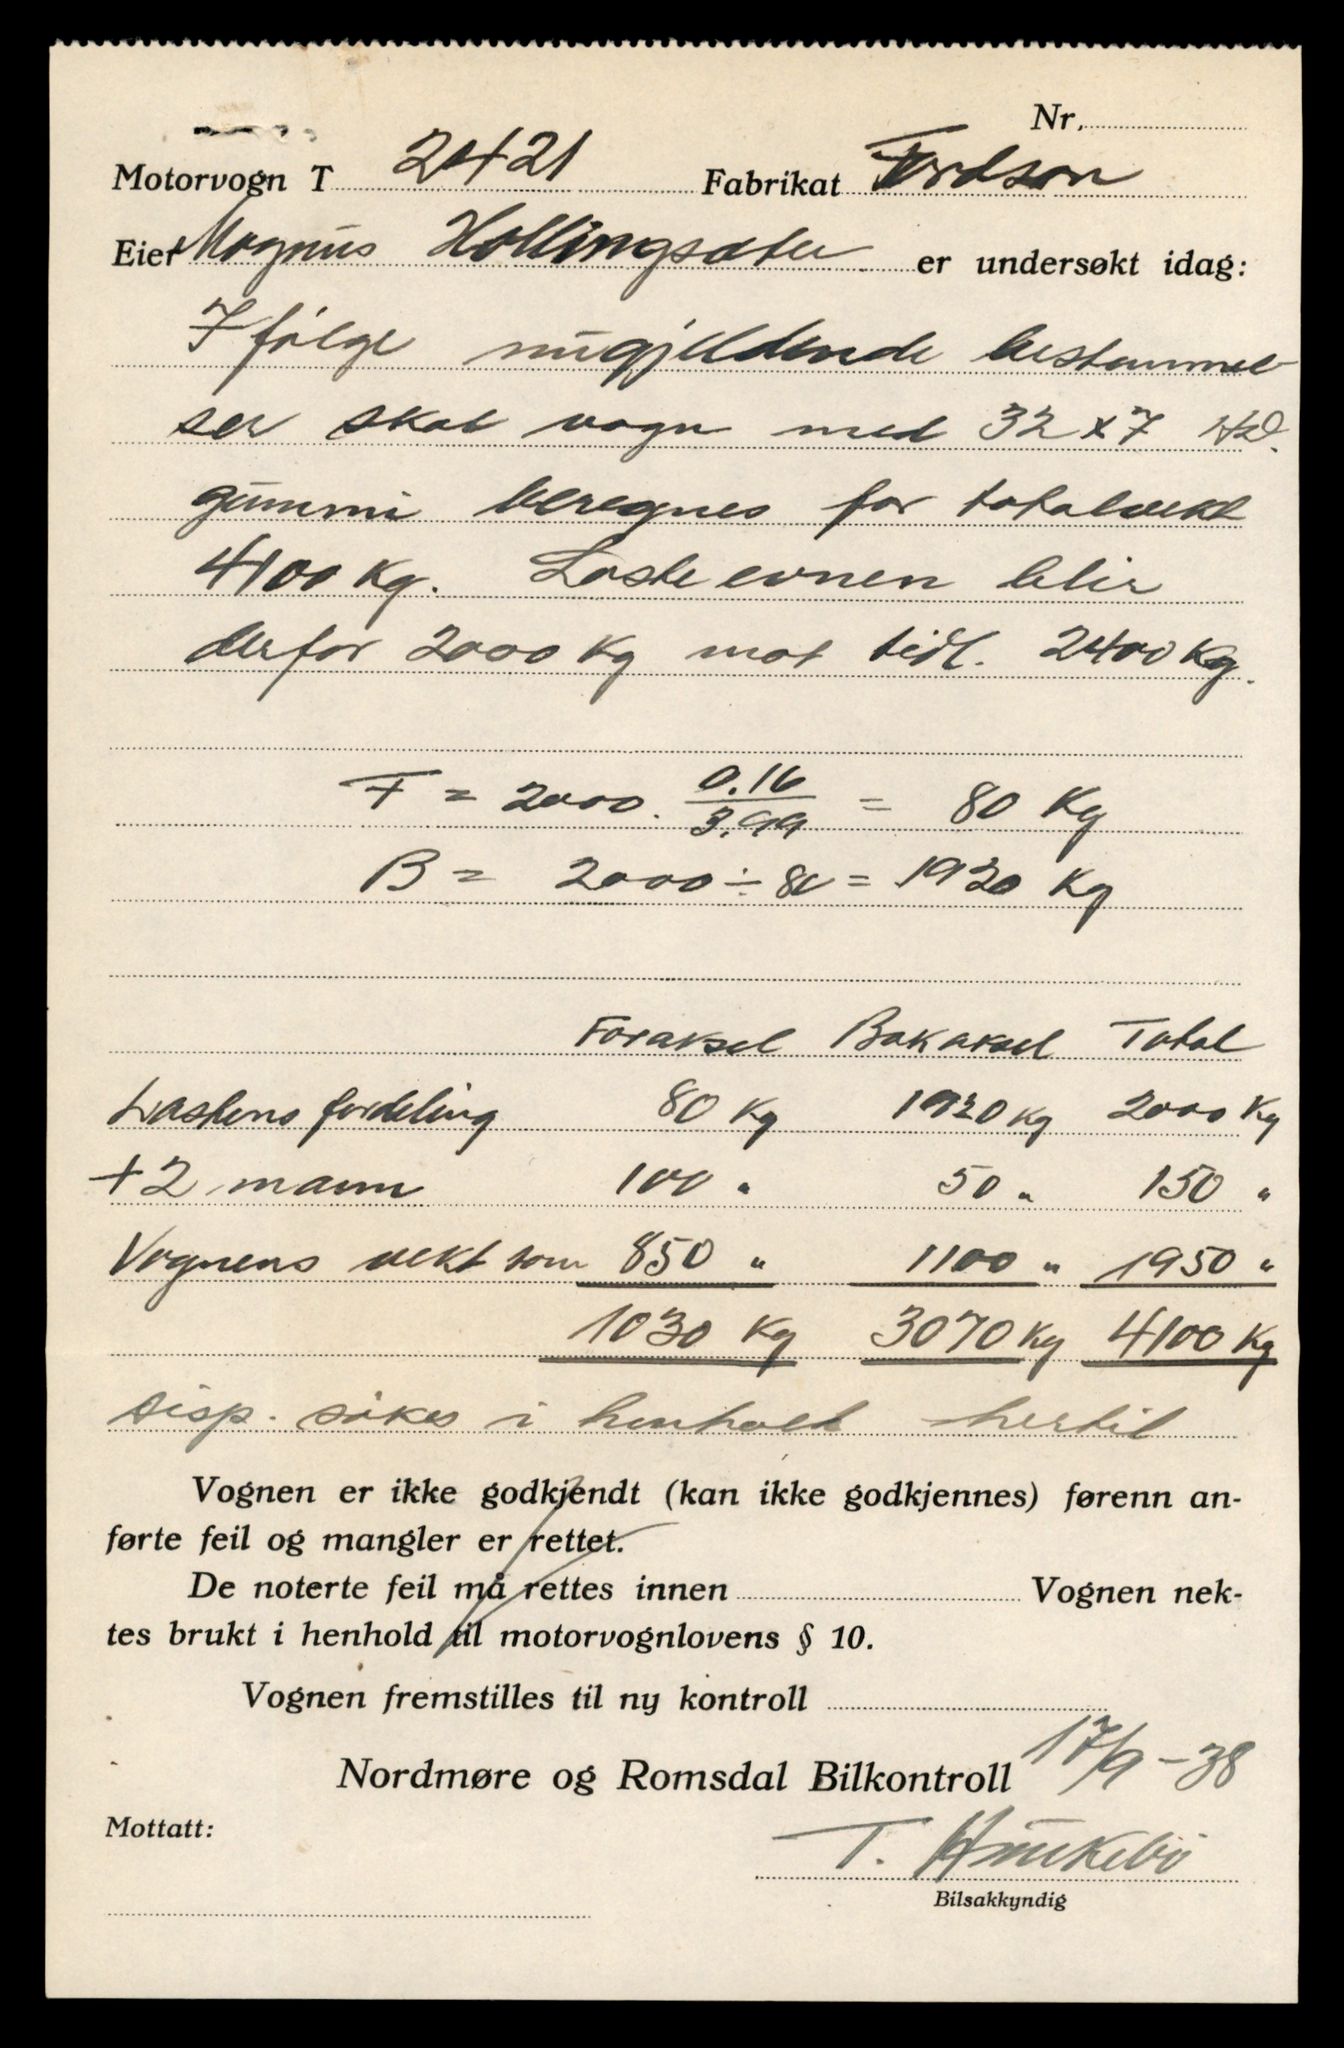 Nr.
Motorvogn T 2421 Fabrikat Fordson
Eier Magnus Hollingsæter er undersøkt idag:
I følge nugjeldende bestemmel-
ser skal vogn med 32 x 7 HD.
gummi beregnes for totalvekt
4100 kg. Lasteevnen blir
derfor 2000 kg mot tidl. 2400 kg.
F = 2000 . 0.16 / 3.99 = 80 kg
B = 2000 ÷ 80 = 1920 kg
Foraksel Bakaksel Total
Lastens fordeling 80 kg 1920 kg 2000 kg
+ 2 mann 100 " 50 " 150 "
Vognens vekt som 850 " 1100 " 1950 "
1030 kg 3070 kg 4100 kg
Disp. søkes i henhold hertil
Vognen er ikke godkjendt (kan ikke godkjennes) førenn an-
førte feil og mangler er rettet.
De noterte feil må rettes innen Vognen nek-
tes brukt i henhold til motorvognlovens § 10.
Vognen fremstilles til ny kontroll
Nordmøre og Romsdal Bilkontroll 17/9-38
Mottatt:
T.
Bilsakkyndig